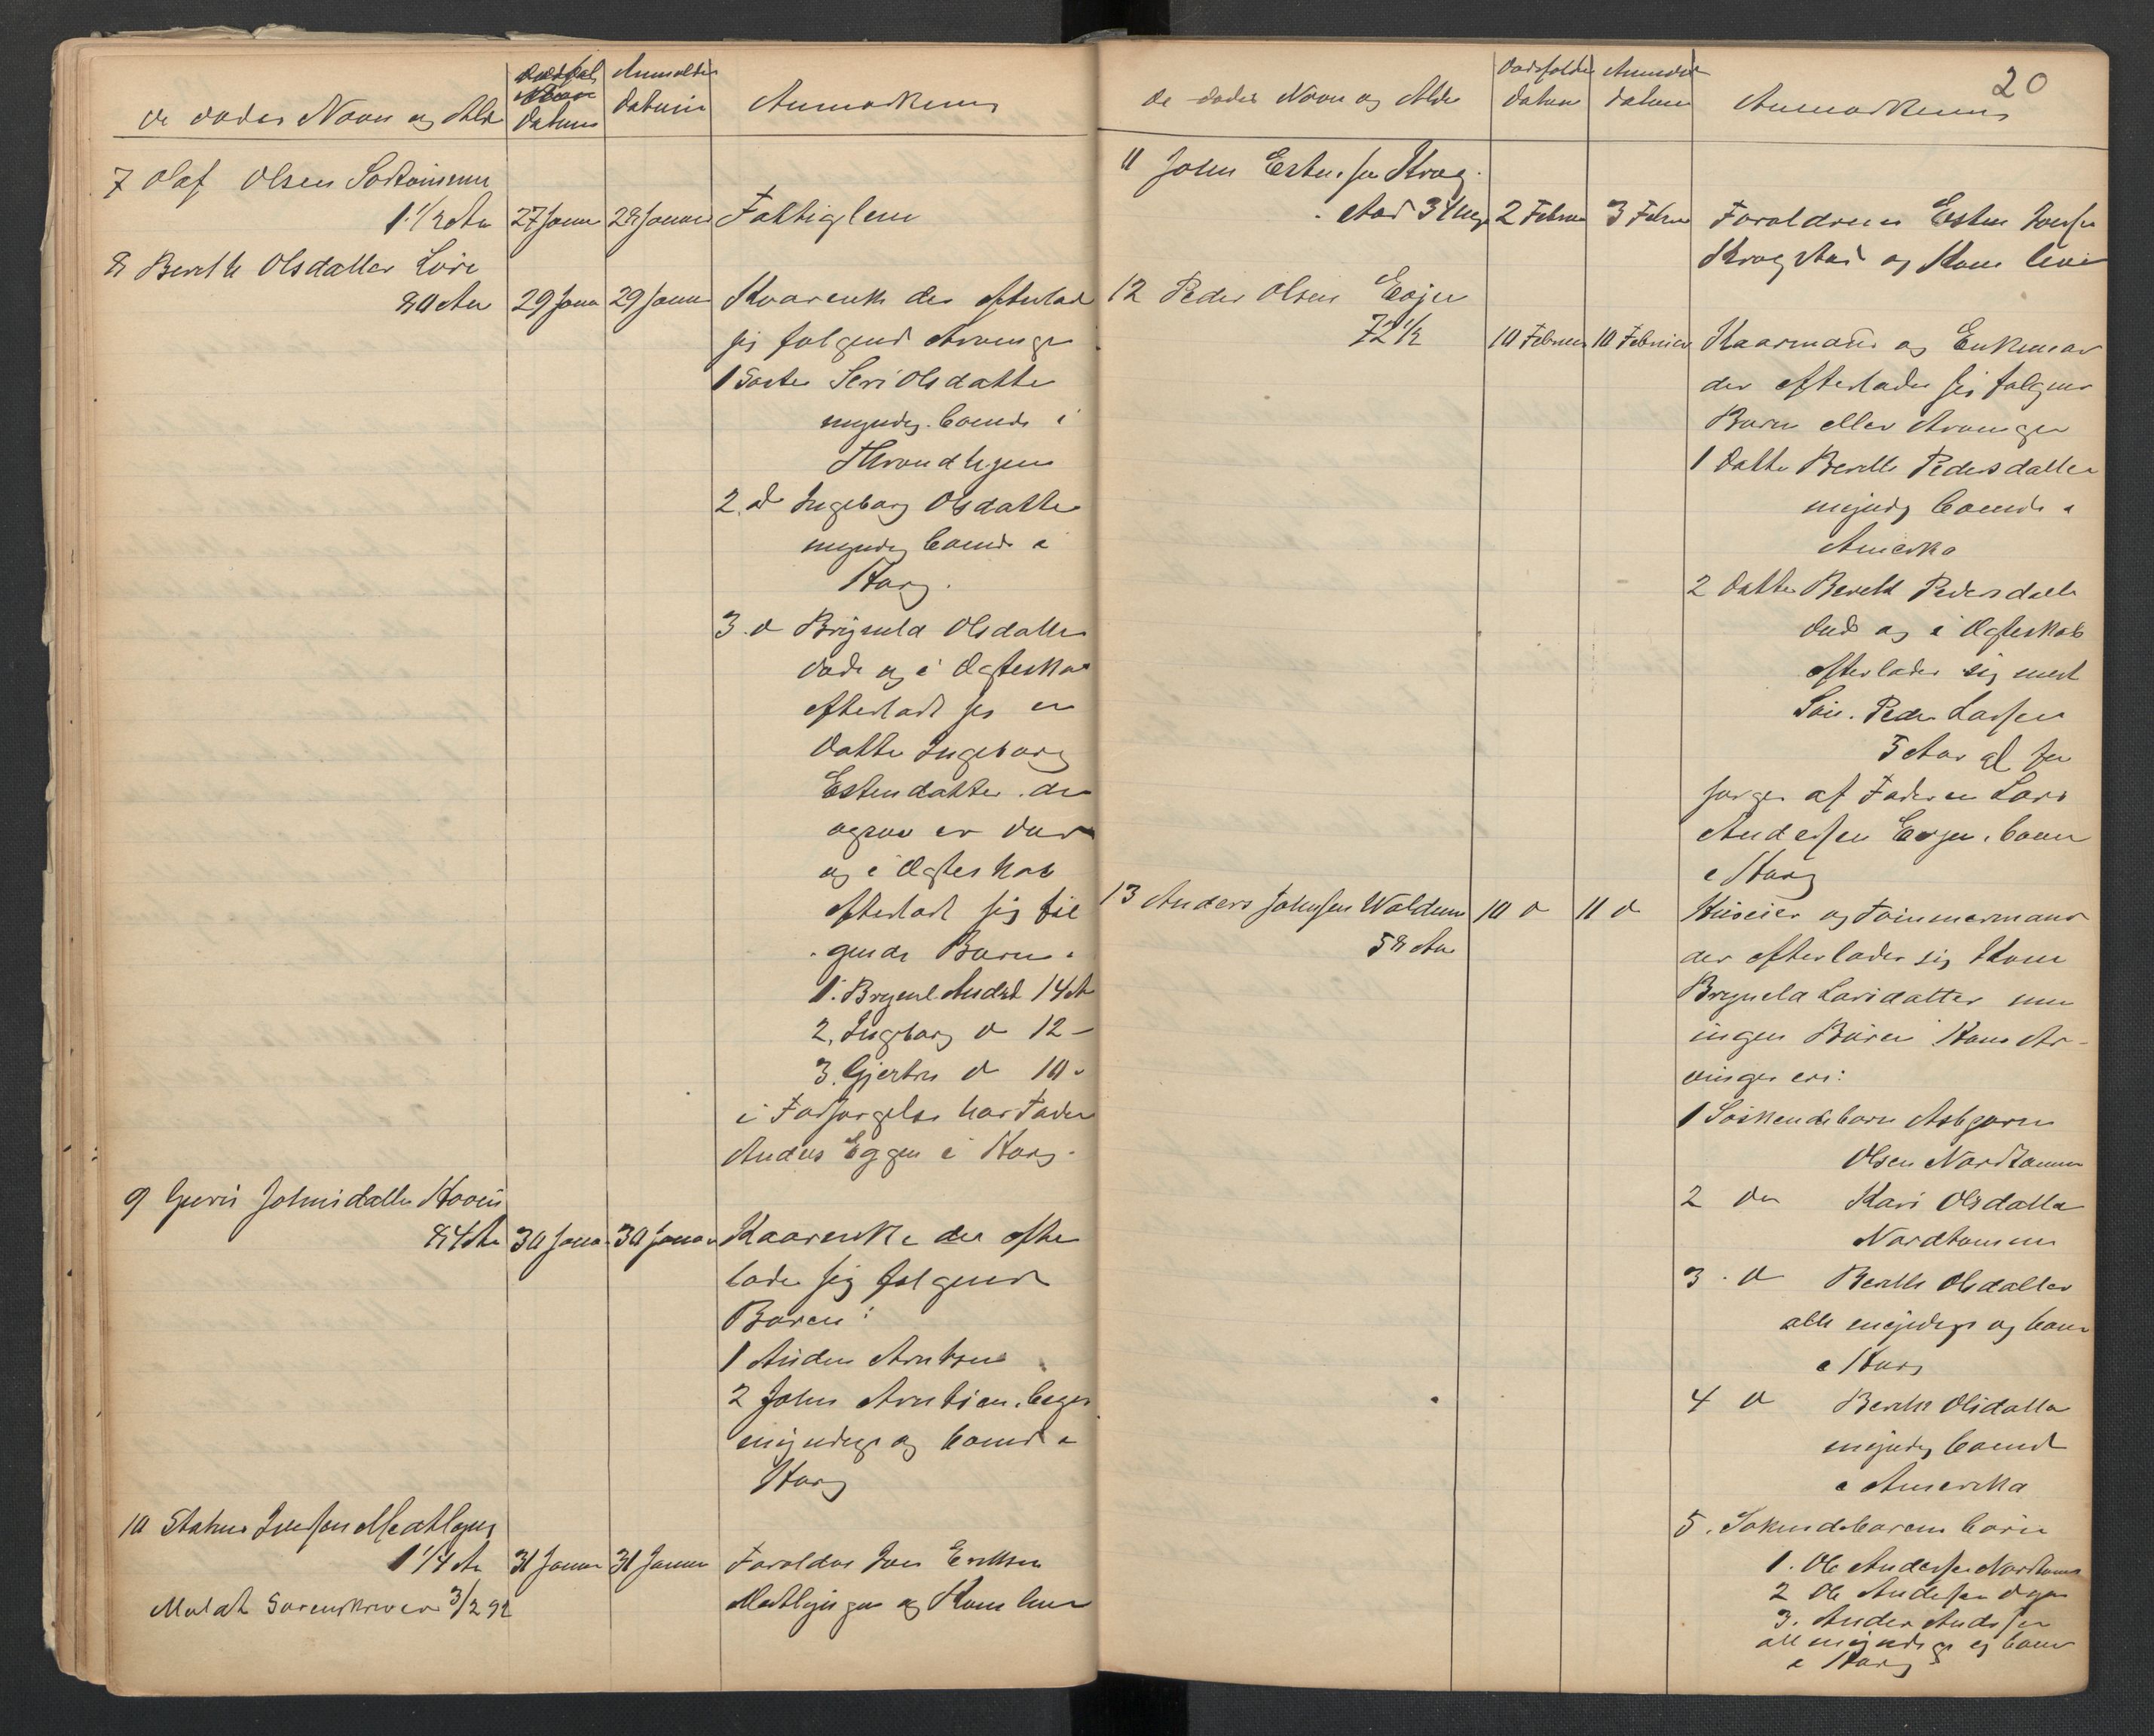 de dødes Navn og Alder
Dødsfal
Datum
Anmeldte
Datum
Anmærkning
7 Olaf Olsen
1 1/2 Aar 27 Januar 28 Januar Fattiglem
8 Bereth Olsdatter
80 Aar 29 Janua 29 Januar Kaarenke der efterlader
sig følgende Arvinger
1 Søster Seri Olsdatter
myndig boende i
Throndhjem
2. d Ingeborg Olsdatter
myndig boende i
Horg.
3. d Brynild Olsdatter
døde og i Ægteskab
efterladt sig en
Datter Ingeborg
Estensdatter der
ogsaa er død
og i Ægteskab
efterladt sig føl
gende Børn.
1. Brynil. Andsd 14 A
2. Ingeborg d 12 -
3. Gjertru d 10 -
i Forsørgelse hos Fader
Anders Eggen i Horg.
9 Guru Johnsdatter Hovin
84 Aar 30 Januar 30 Januar Kaarenke der efter
lader sig følgende
Børn:
1 Anders Arntsen
2 John Arntsen. begge
myndige og boende i
Horg
10 Iversen
1 1/4 Aar 31 Januar 31 Januar Forældre Iver Eriksen
og Kone
Meldt Sorenskriver 3/2 92
20
de dødes Navn og Alder
Dødsfalde
Datum
Anmeldt
Datum
Anmærkning
11 John Estensen Krog-
stad 3 2 Februar 3 Februar Forældrene Esten Iversen
Krogstad og Kone
12 Peder Olsen Evjen
72 1/2 10 Februar 10 Februar Kaarmand og Enkemand
der efterlader sig følgende
Børn eller Arvinger
1 Datter Bereth Pedersdatter
myndig boende i
Amerika
2 Datter Bereth Pedersdatter
Død og i Ægteskab
efterlader sig
Søn. Peder Larsen
5 Aar gl for
sørges af Faderen Lars
Andersen Evjen. boende
i Horg
13 Anders Johnsen Woldum 10 d 11 d Huseier og Tømmermand
58 Aar
der efterlader sig Kone
Brynela Larsdatter men
ingen Børn Hans Ar-
vinger er:
1 Søskendebarn Asbjørn
Olsen Nordtømme
2 do Kari Olsdatter
Nordtømme
3. d Bereth Olsdatter
alle myndige og boende
i Horg
4 d Bereth Olsdatter
myndig boende
i Amerika
5. Søkendebarns børn
1. Ole Andersen Nordtømme
2 Ole Andersen
3. Anders Andersen
alle myndige og boende
i Horg